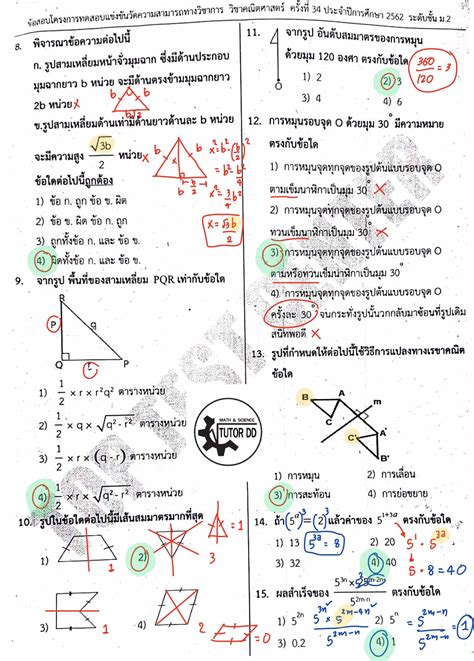 ข้อสอบโครงการทดสอบแข่งขันวัดความสามารถทางวิชาการ วิชาคณิตศาสตร์ ครั้งที่ 34 ประจำปีการศึกษา 2562 ระดับชั้น ม.2
8. พิจารณาข้อความต่อไปนี้
ก. รูปสามเหลี่ยมหน้าจั่วมุมฉาก ซึ่งมีด้านประกอบ
มุมฉากยาว b หน่วย จะมีด้านตรงข้ามมุมฉากยาว
2b หน่วย x
b b
ข.รูปสามเหลี่ยมด้านเท่ามีด้านยาวด้านละ b หน่วย
จะมีความสูง √3b/2 หน่วย x
ข้อใดต่อไปนี้ถูกต้อง
b x b
x = √3b/2
1) ข้อ ก. ถูก ข้อ ข. ผิด
2) ข้อ ก. ผิด ข้อ ข. ถูก
3) ถูกทั้งข้อ ก. และ ข้อ ข.
4) ผิดทั้งข้อ ก. และ ข้อ ข.
9. จากรูป พื้นที่ของสามเหลี่ยม PQR เท่ากับข้อใด
R
P q
Q r P
1) 1/2 x r x r²q² ตารางหน่วย
2) 1/2 x q x √q²-r² ตารางหน่วย
3) 1/2 x r x (q-r) ตารางหน่วย
4) 1/2 x r x √q²-r² ตารางหน่วย
MATH & SCIENCE
TUTOR DD
TOP TEST CENTER
10. รูปในข้อใดต่อไปนี้มีเส้นสมมาตรมากที่สุด
1) 1
2) 3
= 1
3) 1
4) 2
= 0
11. จากรูป อันดับสมมาตรของการหมุน
ด้วยมุม 120 องศา ตรงกับข้อใด
360/120 = 3
1) 2 2) 3
3) 4 4) 6
12. การหมุนรอบจุด O ด้วยมุม 30° มีความหมาย
ตรงกับข้อใด
1) การหมุนจุดทุกจุดของรูปต้นแบบรอบจุด O
ตามเข็มนาฬิกาเป็นมุม 30° x
2) การหมุนจุดทุกจุดของรูปต้นแบบรอบจุด O
ทวนเข็มนาฬิกาเป็นมุม 30° x
3) การหมุนจุดทุกจุดของรูปต้นแบบรอบจุด O
ตามหรือทวนเข็มนาฬิกาเป็นมุม 30°
4) การหมุนจุดทุกจุดของรูปต้นแบบรอบจุด O
ครั้งละ 30° จนกระทั่งรูปนั้นวกกลับมาซ้อนที่รูปเดิม
สนิทพอดี x
13. รูปที่กำหนดให้ต่อไปนี้ใช้วิธีการแปลงทางเรขาคณิต
ข้อใด
B A m
C
C' A'
B'
1) การหมุน 2) การเลื่อน
3) การสะท้อน 4) การย่อขยาย
14. ถ้า (5ᵃ)³ = (2)³ แล้วค่าของ 5¹⁺³ᵃ ตรงกับข้อใด
1) 13 5³ᵃ = 8 2) 20 5¹ · 5³ᵃ
3) 32 4) 40 5 · 8 = 40
15. ผลสำเร็จของ ตรงกับข้อใด
1) 5²ⁿ 2) 5ⁿ
3) 0.2 4) 1
= 1